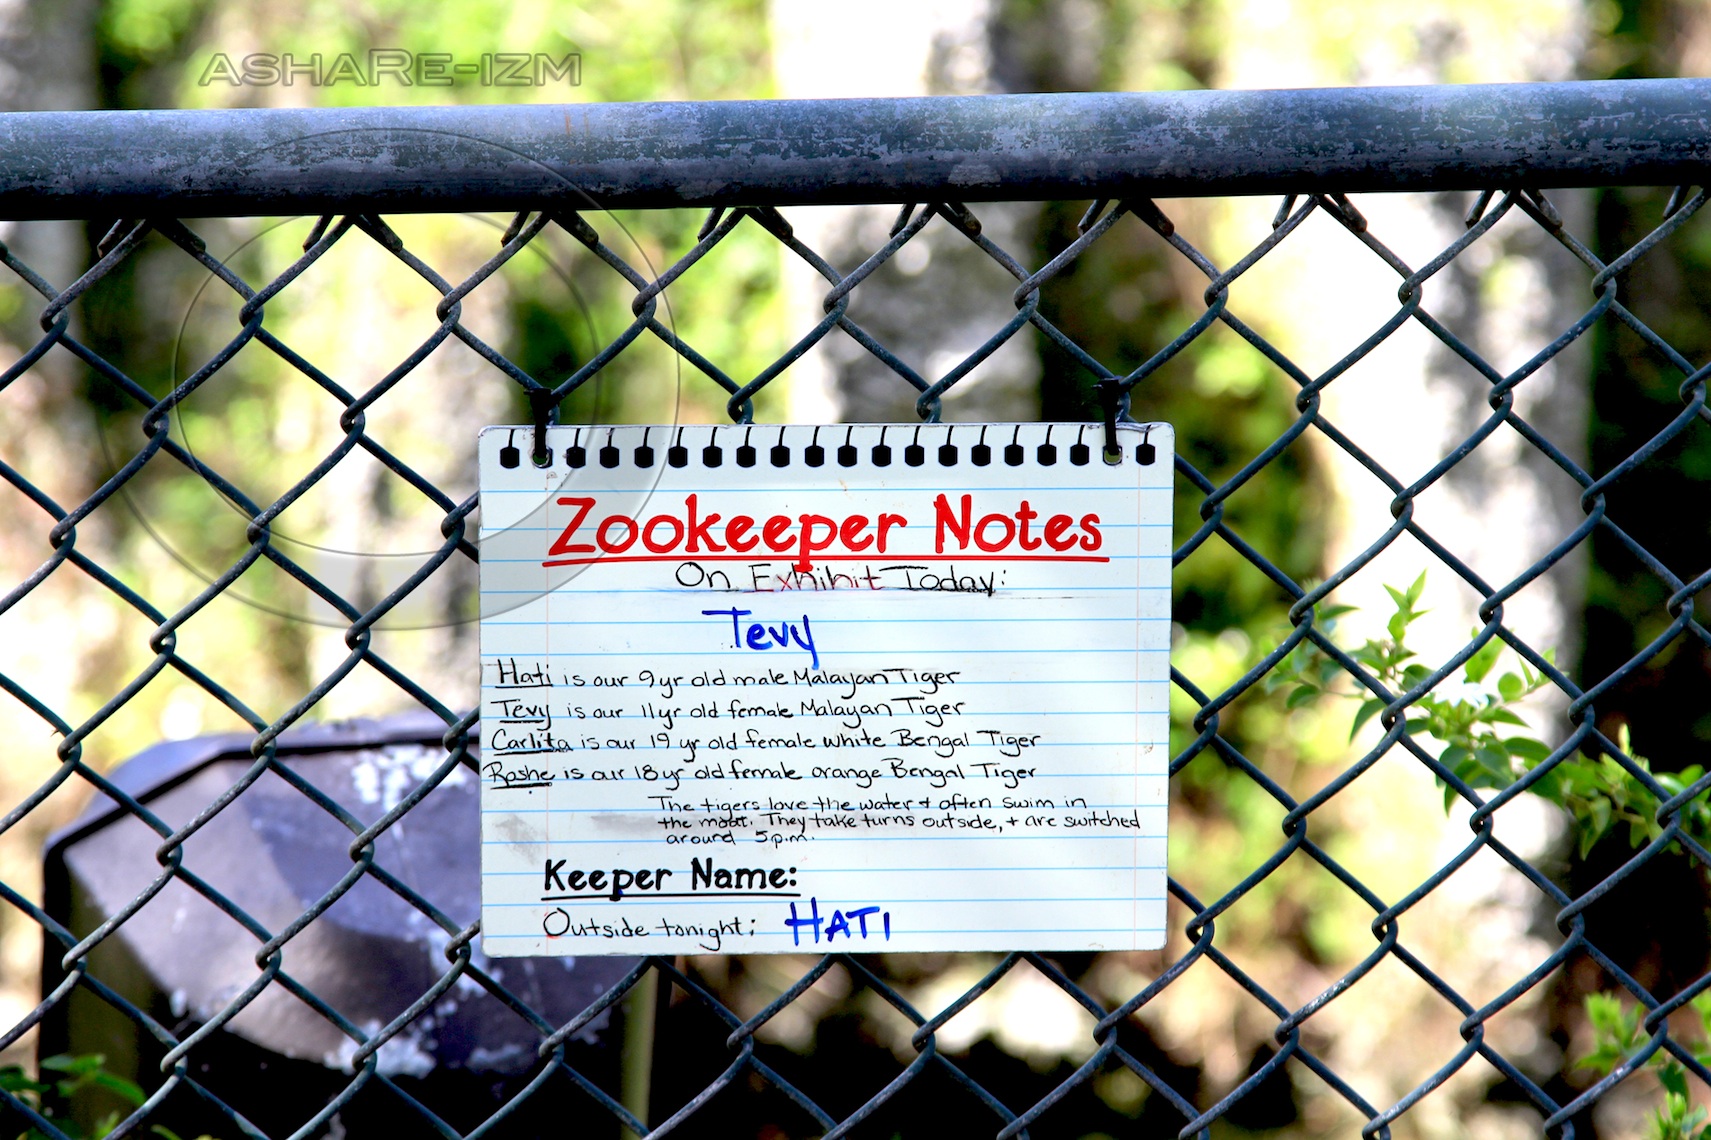 ASHARE-IZM
Zookeeper Notes
On Exhibit Today:
Tevy
Hati is our 9yr old male Malayan Tiger
Tevy is our 11yr old female Malayan Tiger
Carlita is our 19 yr old female white Bengal Tiger
Rashe is our 18yr old female orange Bengal Tiger
The tigers love the water + often swim in
the moat. They take turns outside, + are switched
around 5p.m.
Keeper Name:
Outside tonight: HATI